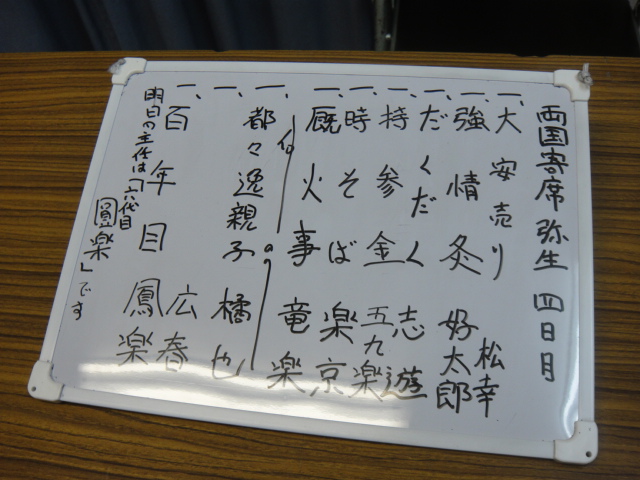 両国寄席 弥生 四日月
一、大安売り 松幸
一、強情灸 好太郎
一、だくだく 志遊
一、持参金 五九楽
一、時そば 楽京
一、厩火事 竜楽
仲入り
一、都々逸親子 橘也
一、 広春
一、百年目 鳳楽
明日の主任は「六代目
圓楽」です